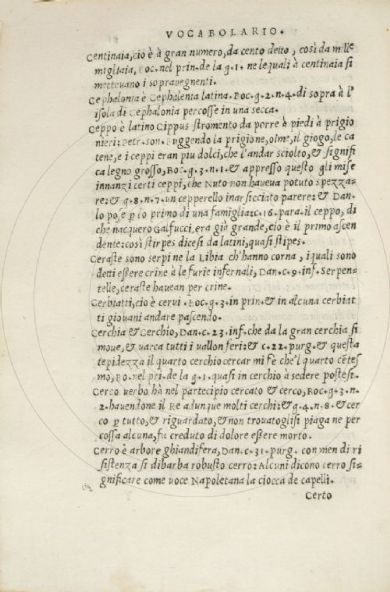 VOCABOLARIO.
Centinaia, cio è à gran numero, da cento detto, così da mille
migliaia, Boc. nel prin. de la g. 1. ne le quali à centinaia si
mettevano i sopravegnenti.
Cephalonia è Cephalenia latina. Boc. g. 2. n. 4. di sopra à l'
isola di Cephalonia percosse in una secca.
Ceppo è latino Cippus stromento da porre è piedi à prigio
nieri: Petr. son. Fuggendo la prigione, olme, il giogo, le ca
tene, e i ceppi eran piu dolci, che l'andar sciolto, & signifi
ca legno grosso, Boc. g. 3. n. 1. & appresso questo gli mise
innanzi certi ceppi, che Nuto non haveva potuto spezza
re: & g. 8. n. 7. un cepperello inarsicciato parere: & Dan.
lo po e p lo primo di una famiglia: c. 16. para. il ceppo, di
che nacquero Calfucci, era già grande, cio è il primo ascen
dente: così stirpes dicesi da latini, quasi stipes.
Ceraste sono serpi ne la Libia ch'hanno corna, i quali sono
detti essere crine à le furie infernali, Dan. c. 9. inf. Serpen
telle, ceraste havean per crine.
Cerbiatti, cio è cervi. Boc. g. 3. in prin. & in alcuna cerbiat
ti giovani andare pascendo.
Cerchia & Cerchio, Dan. c. 23. inf. che da la gran cerchia si
move, & varca tutti i vallon feri: & c. 22. purg. & questa
tepidezza il quarto cerchio cercar mi fe che'l quarto cētes
mo, Bo. nel pri. de la g. 1. quasi in cerchio à sedere postesi.
Cerco verbo hà nel partecipio cercato & cerco, Boc. g. 3. n.
2. havendone il Re adunque molti cerchi: & g. 4. n. 8. & cer
co p tutto, & riguardato, & non trovatoglisi piaga ne per
cossa alcuna, fu creduto di dolore essere morto.
Cerro è arbore ghiandifera, Dan. c. 31. purg. con men di ri
sistenza si dibarba robusto cerro: Alcuni dicono cerro si-
gnificare come voce Napoletana la ciocca de capelli.
Certo